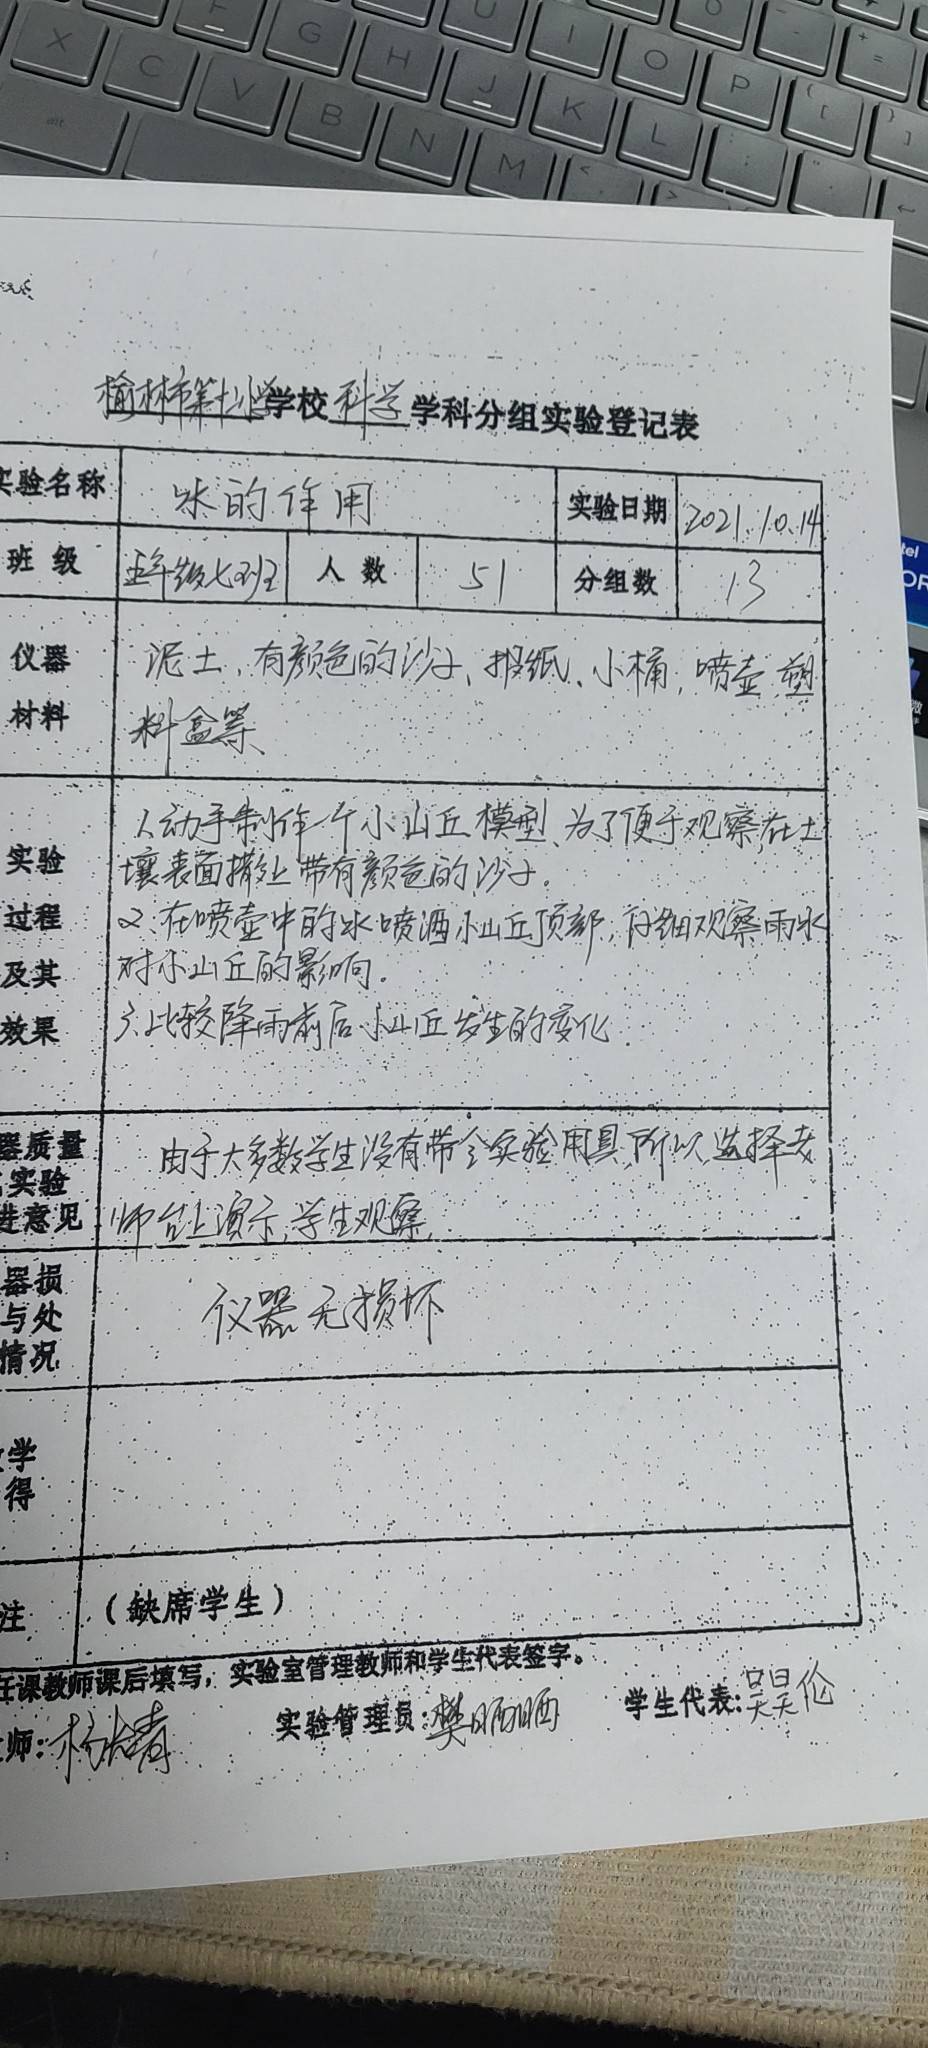 榆林市第十小学学校科学学科分组实验登记表
实验名称 水的作用 实验日期 2021.10.14
班级 五年级七班 人数 51 分组数 13
仪器 泥土、有颜色的沙子、报纸、小桶、喷壶、塑
材料 料盒等、
1、动手制作一个小山丘模型、为了便于观察,在土
实验 壤表面撒上带有颜色的沙子.
过程 2、在喷壶中的水喷洒小山丘顶部,仔细观察雨水
及其 对小山丘的影响.
效果 3、比较降雨前后小山丘发生的变化.
器质量 由于大多数学生没有带全实验用具,所以选择老
实验
进意见 师台上演示,学生观察.
器损
与处 仪器无损坏
情况
学
得
注 (缺席学生)
任课教师课后填写,实验室管理教师和学生代表签字。
师: 实验管理员:樊晒晒 学生代表:吴昊伦
X C V B N M
F G H J K L
U I O P
alt